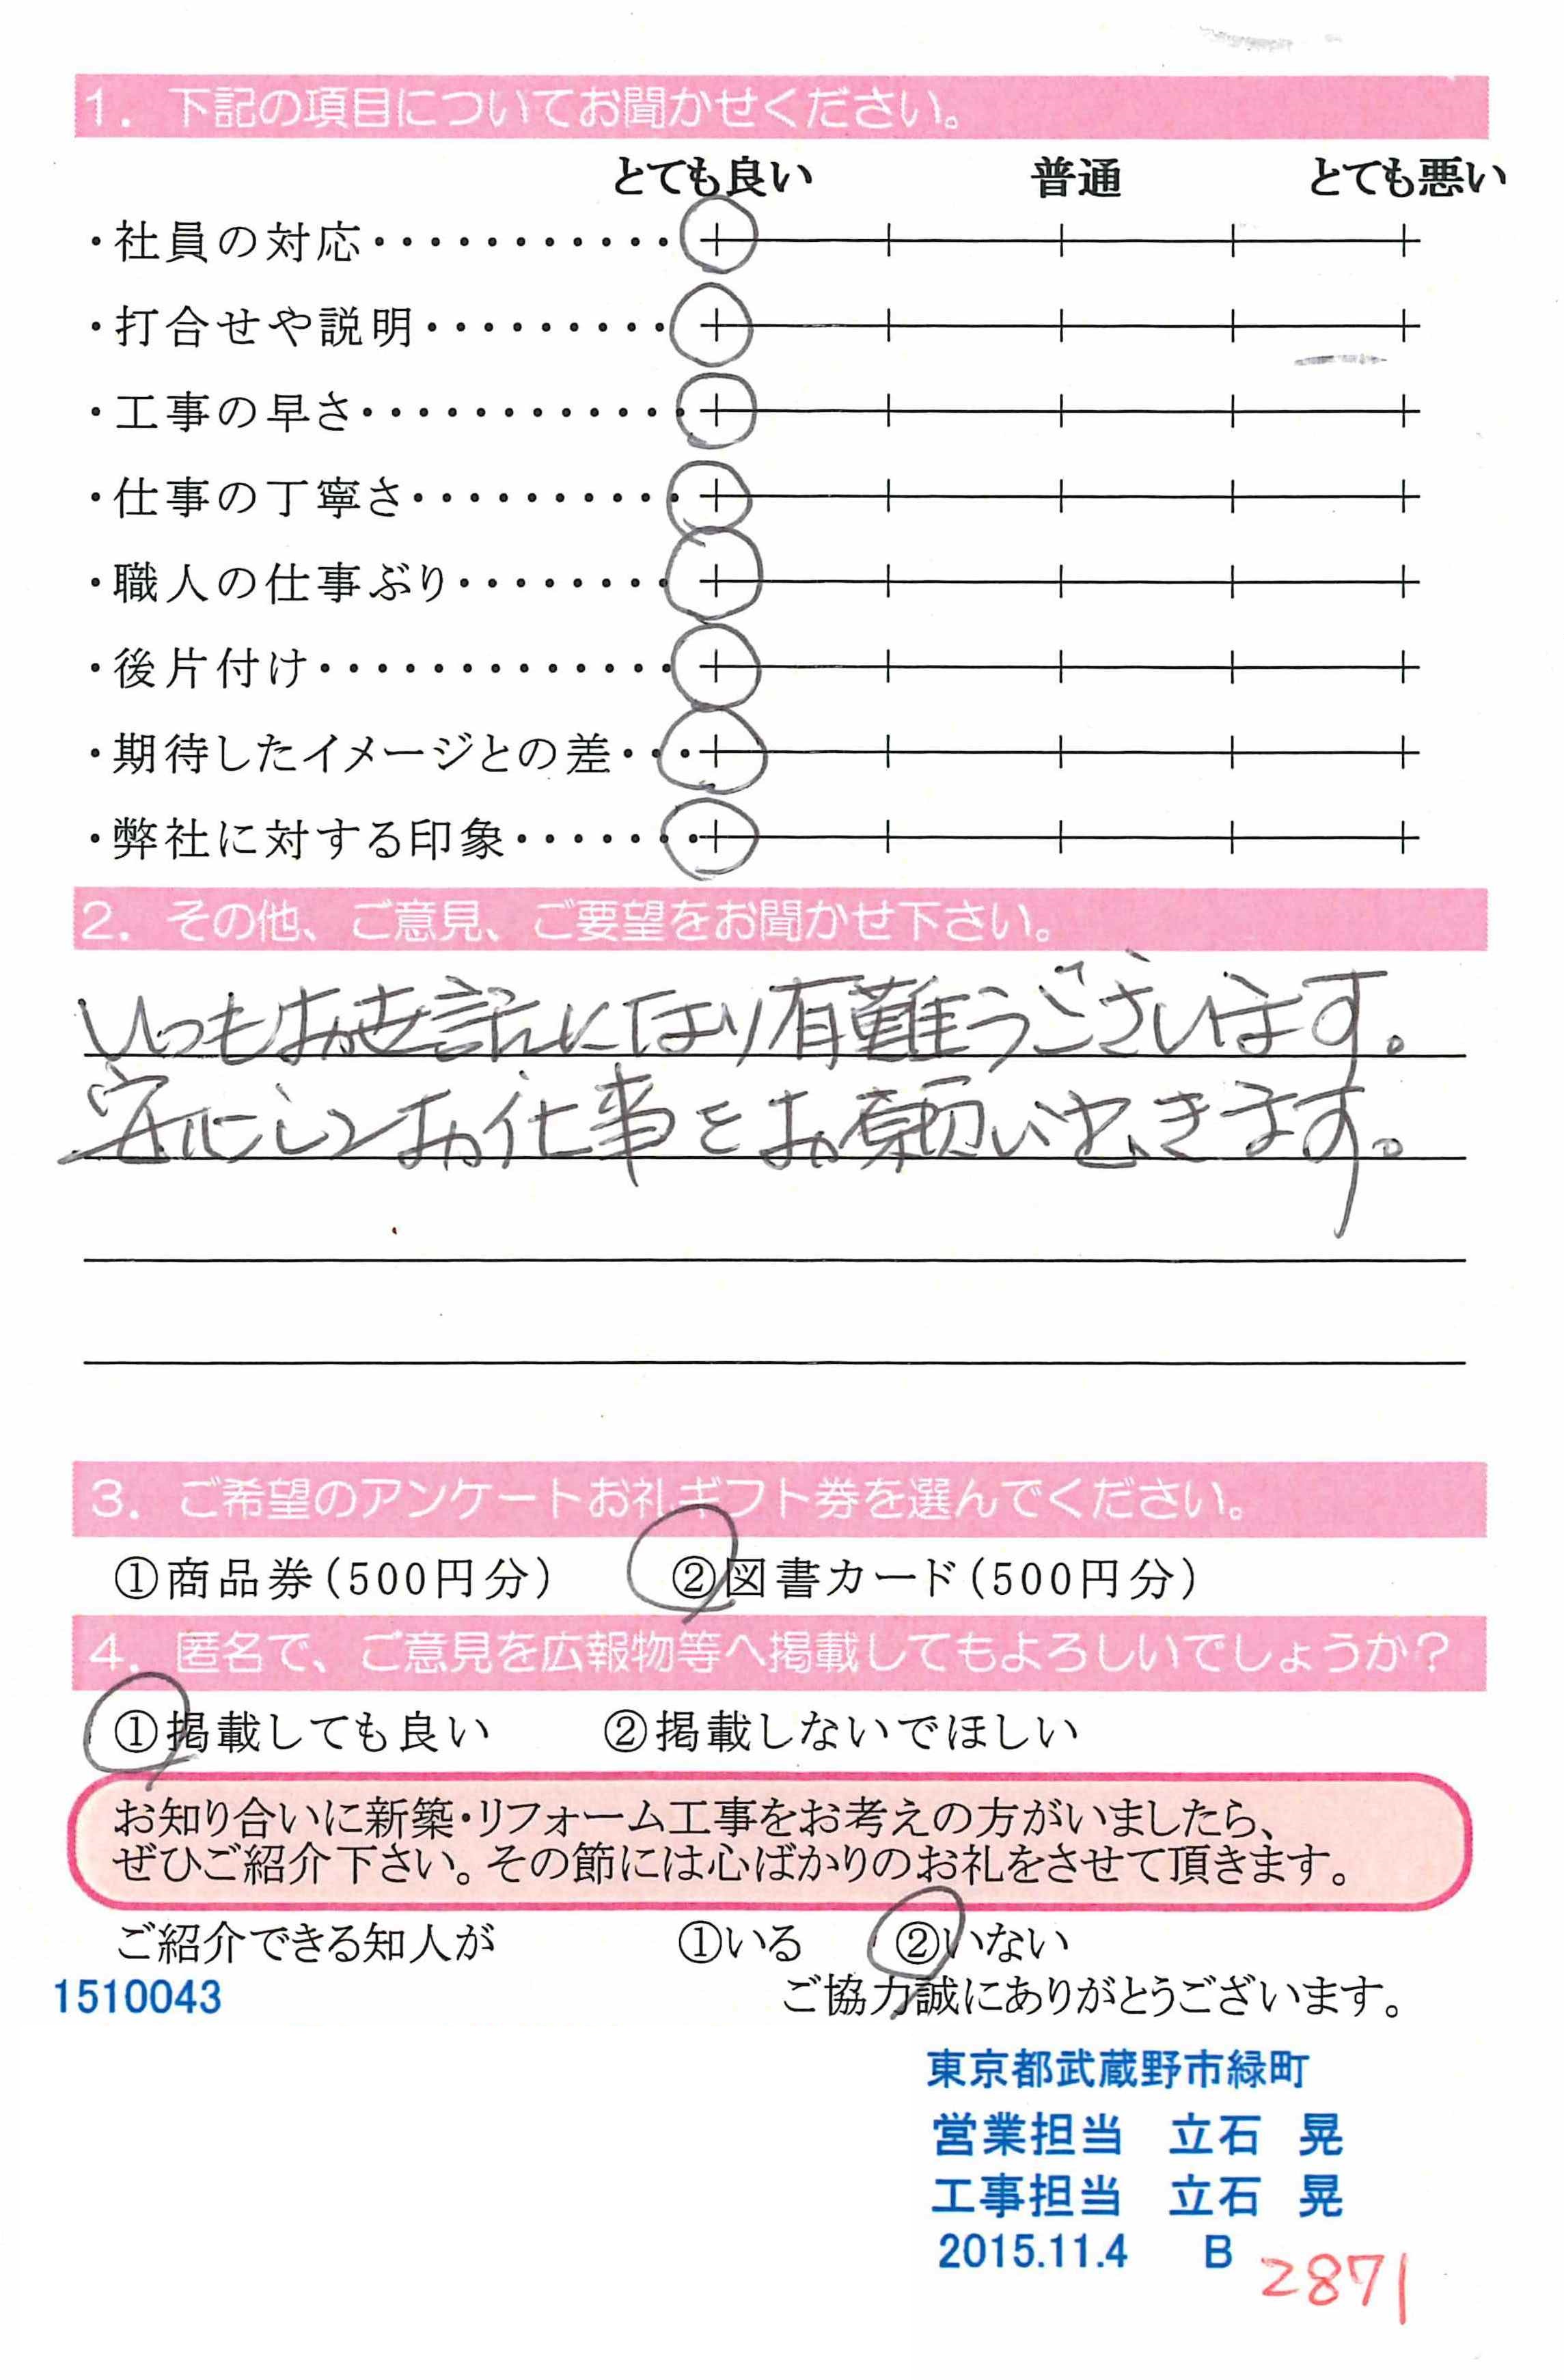 1. 下記の項目についてお聞かせください。
とても良い 普通 とても悪い
・社員の対応・・・・・・・・・・・
・打合せや説明・・・・・・・・・
・工事の早さ・・・・・・・・・・・・
・仕事の丁寧さ・・・・・・・・・・
・職人の仕事ぶり・・・・・・・・
・後片付け・・・・・・・・・・・・・
・期待したイメージとの差・・・
・弊社に対する印象・・・・・・・
2. その他、ご意見、ご要望をお聞かせ下さい。
いつもお世話になり有難うございます。
安心してお仕事をお願い出きます。
3. ご希望のアンケートお礼ギフト券を選んでください。
①商品券(500円分) ②図書カード(500円分)
4. 匿名で、ご意見を広報物等へ掲載してもよろしいでしょうか?
①掲載しても良い ②掲載しないでほしい
お知り合いに新築・リフォーム工事をお考えの方がいましたら、
ぜひご紹介下さい。その節には心ばかりのお礼をさせて頂きます。
ご紹介できる知人が ①いる ②いない
1510043 ご協力誠にありがとうございます。
東京都武蔵野市緑町
営業担当 立石 晃
工事担当 立石 晃
2015.11.4 B 2871